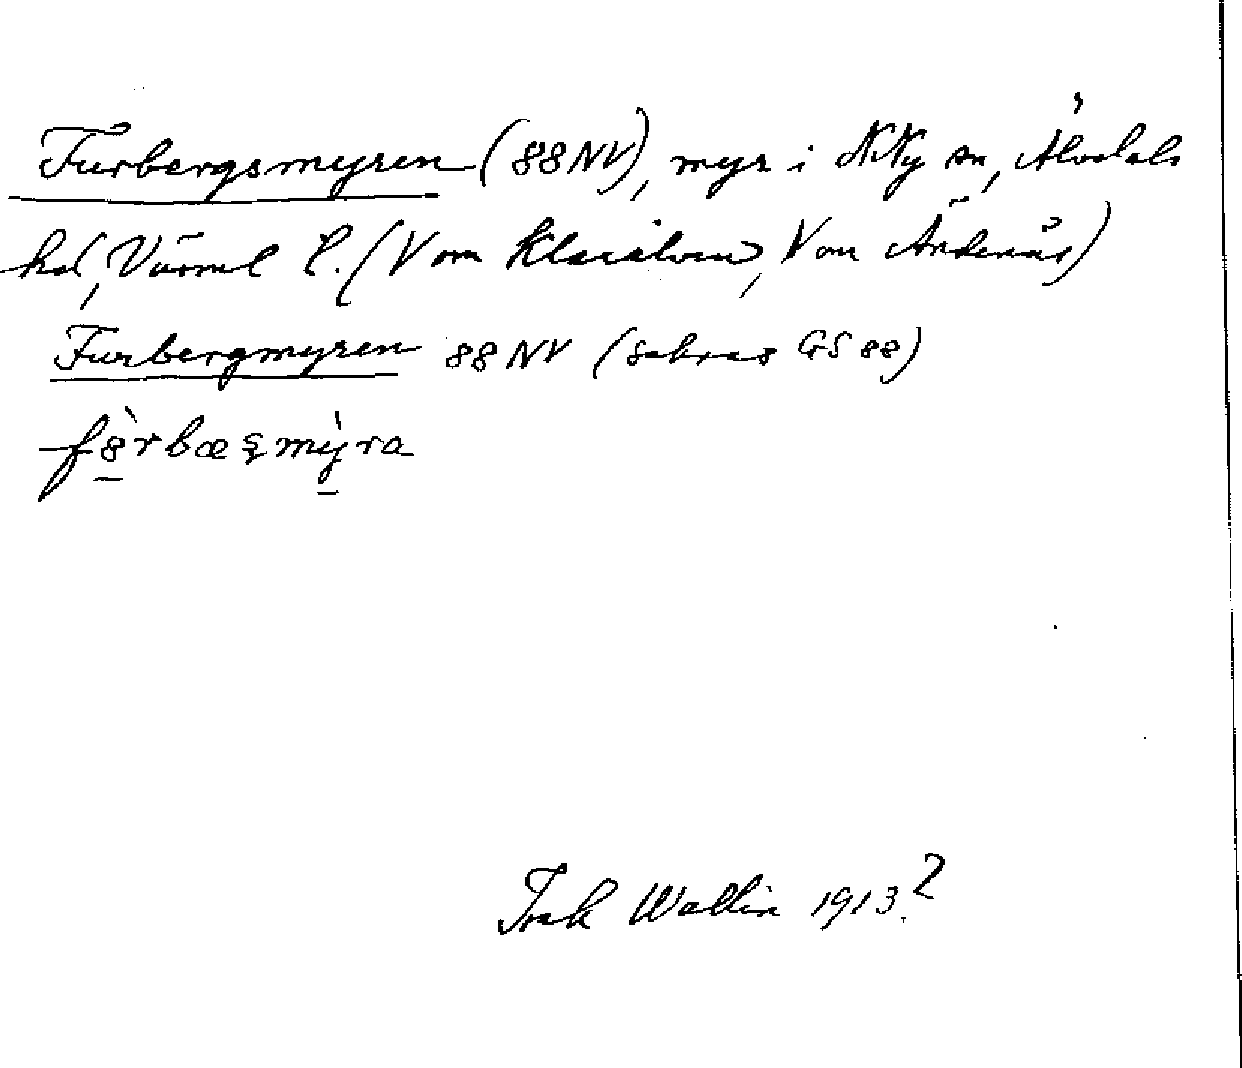 Furbergsmyren (88 NV), myr i N Ny sn, Älvdals
hd, Värml l. (V om Klarälven, V om Ändenäs)
Furbergmyren 88 NV (saknas GS 88)
Wallin 1913?